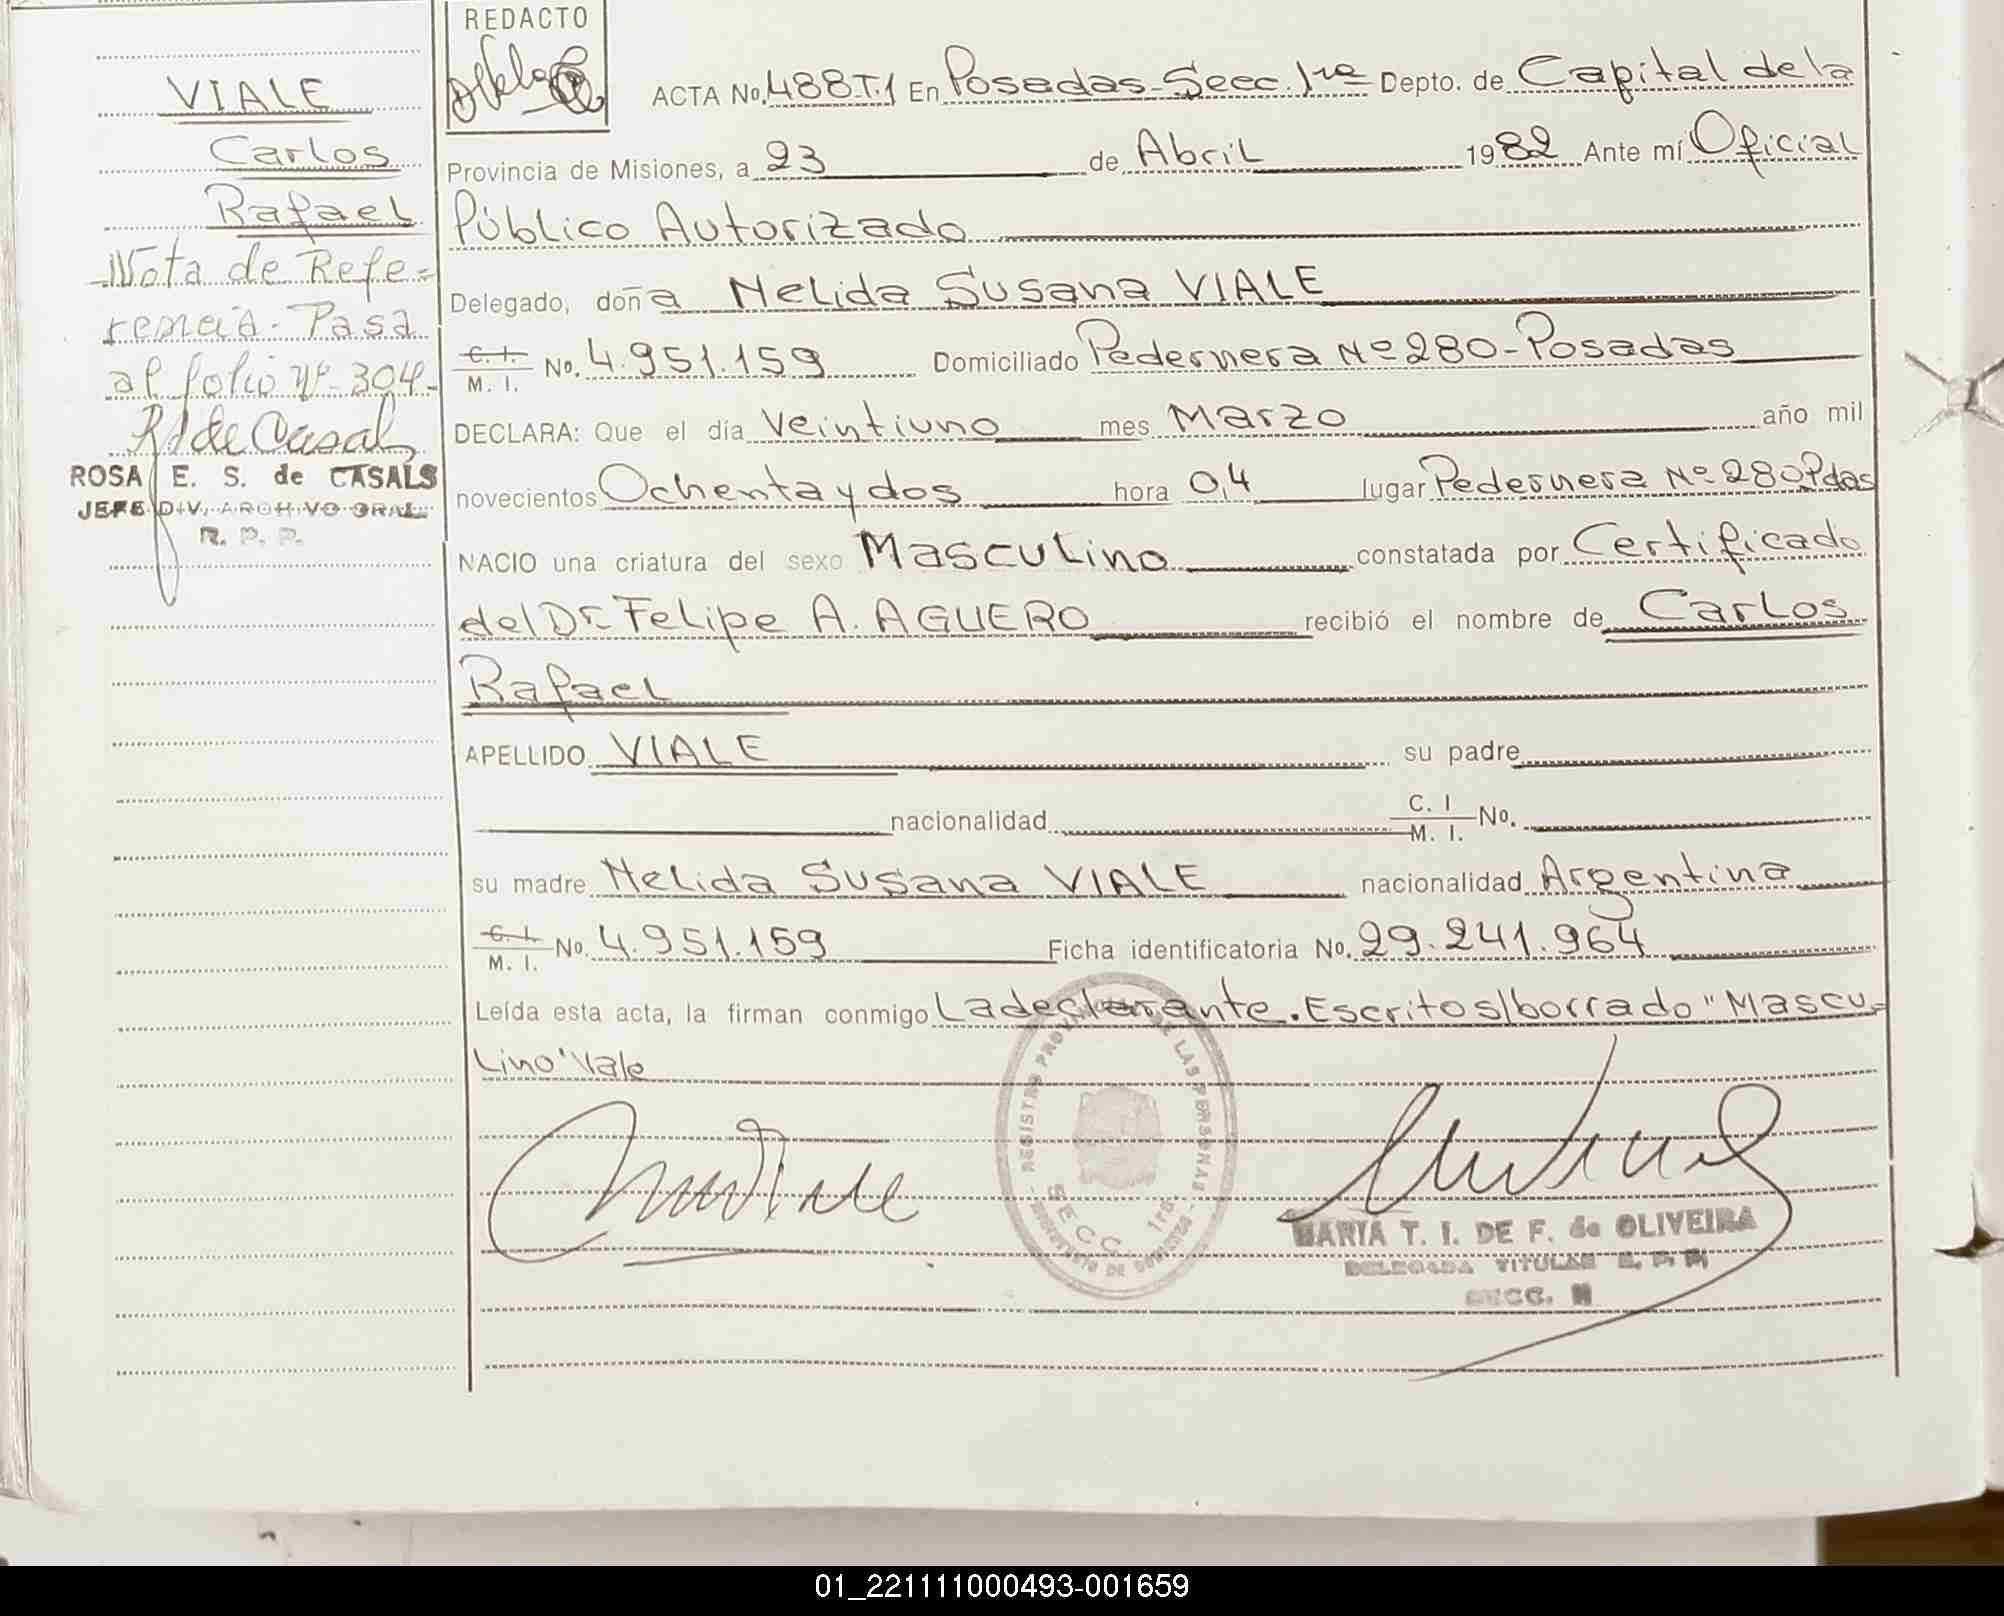 VIALE
Carlos
Rafael
Nota de Refe=
rencia- Pasa
al folio Nº 304-
ROSA E. S. de CASALS
JEFE DIV. ARCHIVO GRAL.
R. P. P.
REDACTO
ACTA No. 488-T.1 En Posadas-Secc. 1ra Depto. de Capital de la
Provincia de Misiones, a 23 de Abril 1982 Ante mí Oficial
Público Autorizado
Delegado, doña Nelida Susana VIALE
C. I. M. I. No. 4.951.159 Domiciliado Pedernera Nº 280-Posadas
DECLARA: Que el día Veintiuno mes Marzo año mil
novecientos Ochenta y dos hora 0,4 lugar Pedernera Nº 280 Pdas
NACIO una criatura del sexo Masculino constatada por Certificado
del Dr. Felipe A. AGUERO recibió el nombre de Carlos
Rafael
APELLIDO VIALE su padre
nacionalidad C. I M. I. No.
su madre Nelida Susana VIALE nacionalidad Argentina
C. I. M. I. No. 4.951.159 Ficha identificatoria No. 29.241.964
Leída esta acta, la firman conmigo La declarante. Escrito s/borrado "Mascu=
Lino" Vale
REGISTRO PROVINCIAL DE LAS PERSONAS
SECC. 1ra
MARIA T. I. DE F. de OLIVEIRA
DELEGADA TITULAR R. P. P.
SECC.
01_221111000493-001659